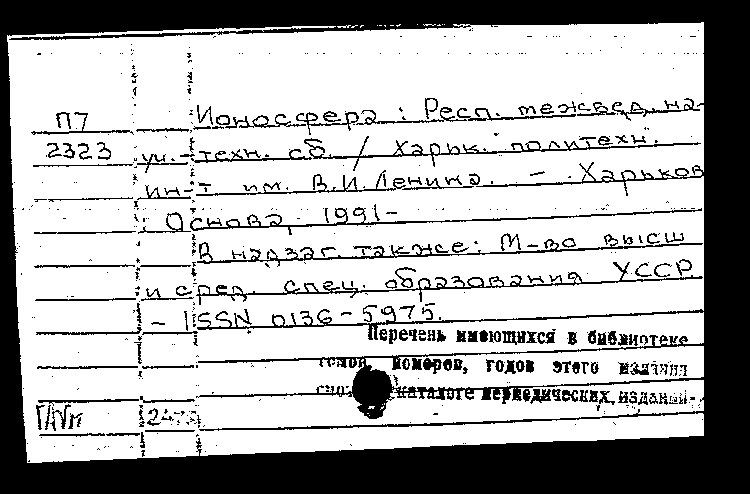 П7 Ионосфера : Респ. межвед. на-
2323 уч.-техн. сб. / Харьк. политехн.
ин-т им. В.И. Ленина. – Харьков
: Основа, 1991-
В надзаг. также: М-во высш
и сред. спец. образования УССР
– ISSN 0136-5975.
Перечень имеющихся в библиотеке
номеров, годов этого издания
каталоге периодических изданий.